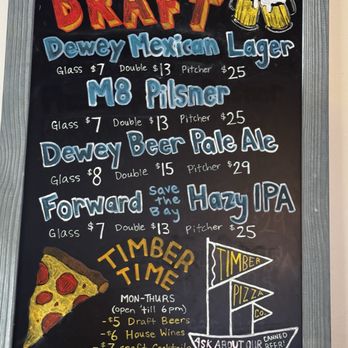 DRAFT
Dewey Mexican Lager
Glass $7 Double $13 Pitcher $25
M8 Pilsner
Glass $7 Double $13 Pitcher $25
Dewey Beer Pale Ale
Glass $8 Double $15 Pitcher $29
Forward Save the Bay Hazy IPA
Glass $7 Double $13 Pitcher $25
TIMBER
TIME
MON-THURS
(open 'till 6pm)
-$5 Draft Beers
-$6 House Wines
-$7 Craft Cocktails
TIMBER
PIZZA
CO.
ASK ABOUT OUR CANNED BEER!